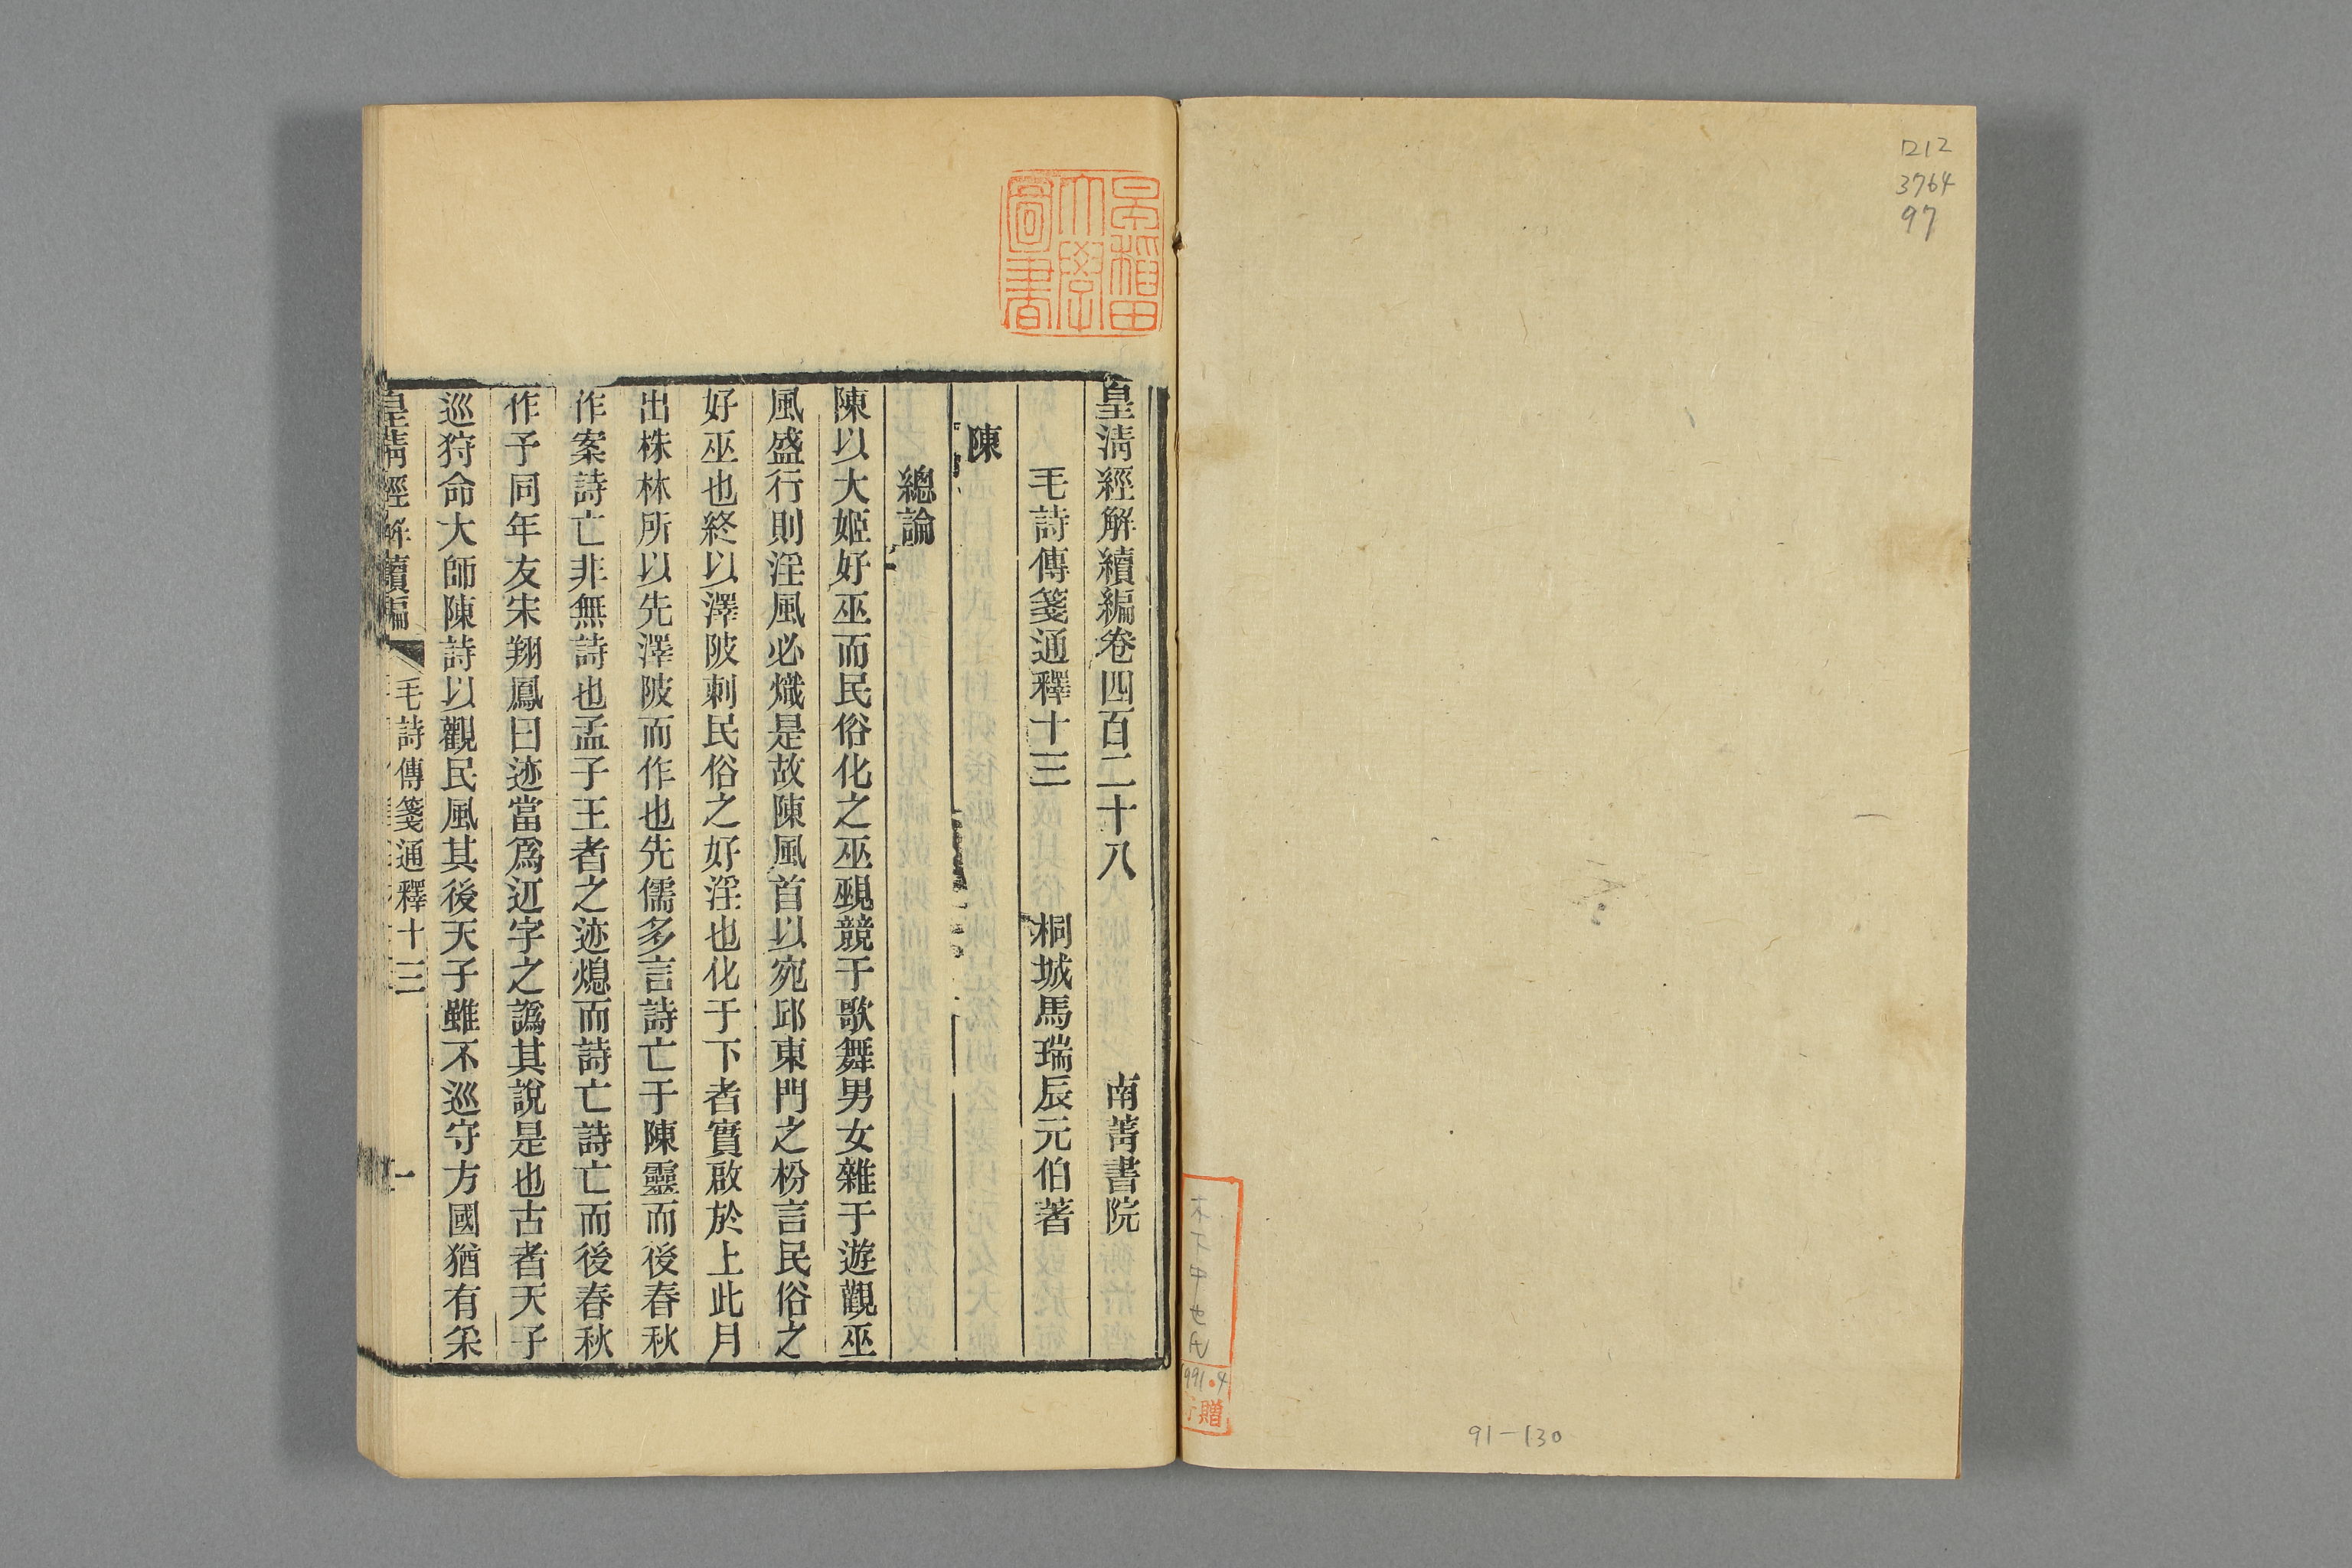 ロ12
3764
97
91-130
木下中也氏
991.4
寄贈
早稲田
大學
圖書
皇清經解續編卷四百二十八
南菁書院
毛詩傳箋通釋十三
桐城馬瑞辰元伯著
陳
總論
陳以大姬好巫而民俗化之巫覡競于歌舞男女雜于遊觀巫
風盛行則淫風必熾是故陳風首以宛邱東門之枌言民俗之
好巫也終以澤陂刺民俗之好淫也化于下者實啟於上此月
出株林所以先澤陂而作也先儒多言詩亡于陳靈而後春秋
作案詩亡非無詩也孟子王者之迹熄而詩亡詩亡而後春秋
作予同年友宋翔鳳曰迹當爲䢋字之譌其說是也古者天子
巡狩命大師陳詩以觀民風其後天子雖不巡守方國猶有采
皇清經解續編
毛詩傳箋通釋十三
一